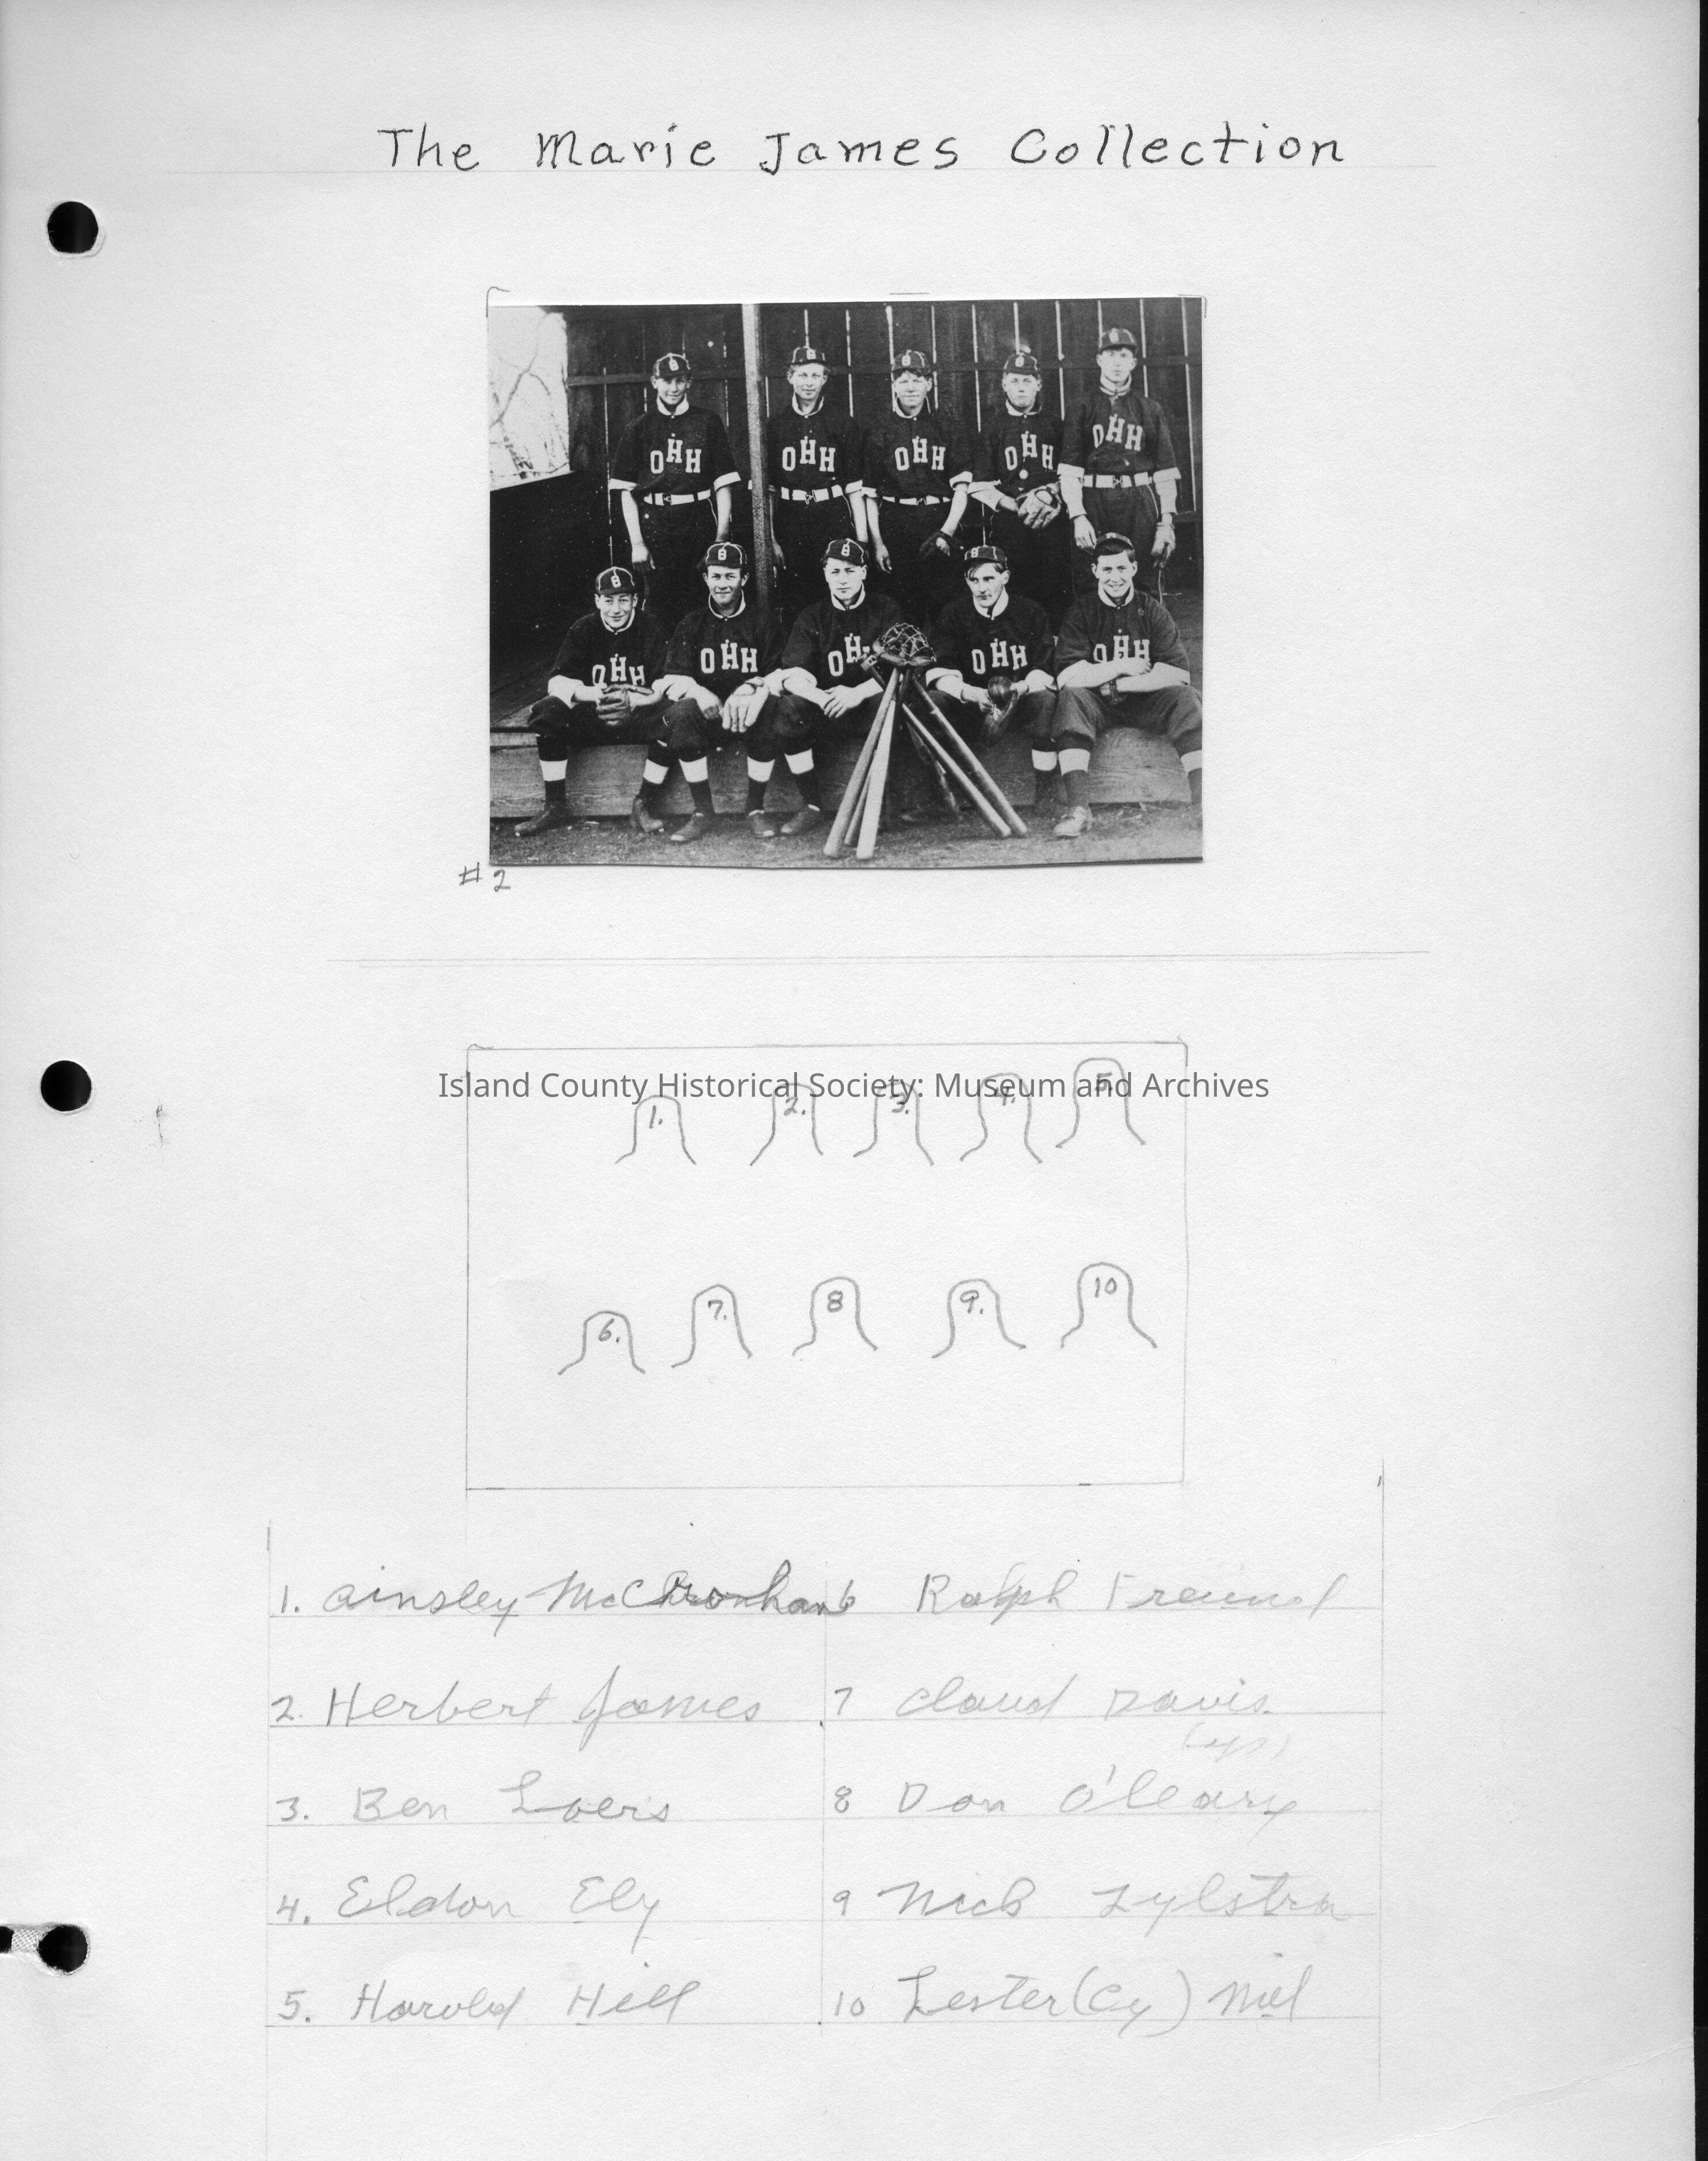 The Marie James Collection
OHH OHH OHH OHH OHH
OHH OHH OH OHH OHH
#2
Island County Historical Society: Museum and Archives
1. 2. 3. 4. 5.
6. 7. 8 9. 10
1. Ainsley McCrohan 6 Ralph Freund
2. Herbert James 7 Claud Davis
3. Ben Loers 8 Don O'Leary
4. Eldon Ely 9 Nick Zylstra
5. Harold Hill 10 Lester (Cy)